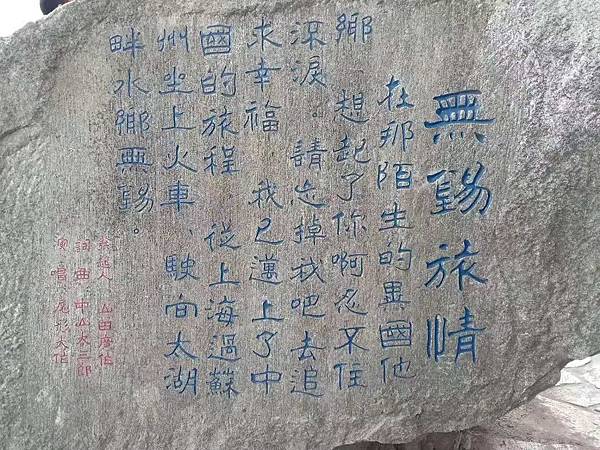 無錫旅情
在那陌生的異國他
鄉、想起了你啊忍不住
深淚。請忘掉我吧去追
求幸福、我已邁上了中
國的旅程、從上海過蘇
州坐上火車、駛向太湖
畔水鄉無錫。
發起人 山田
詞曲:中山大三郎
演唱:尾形大作